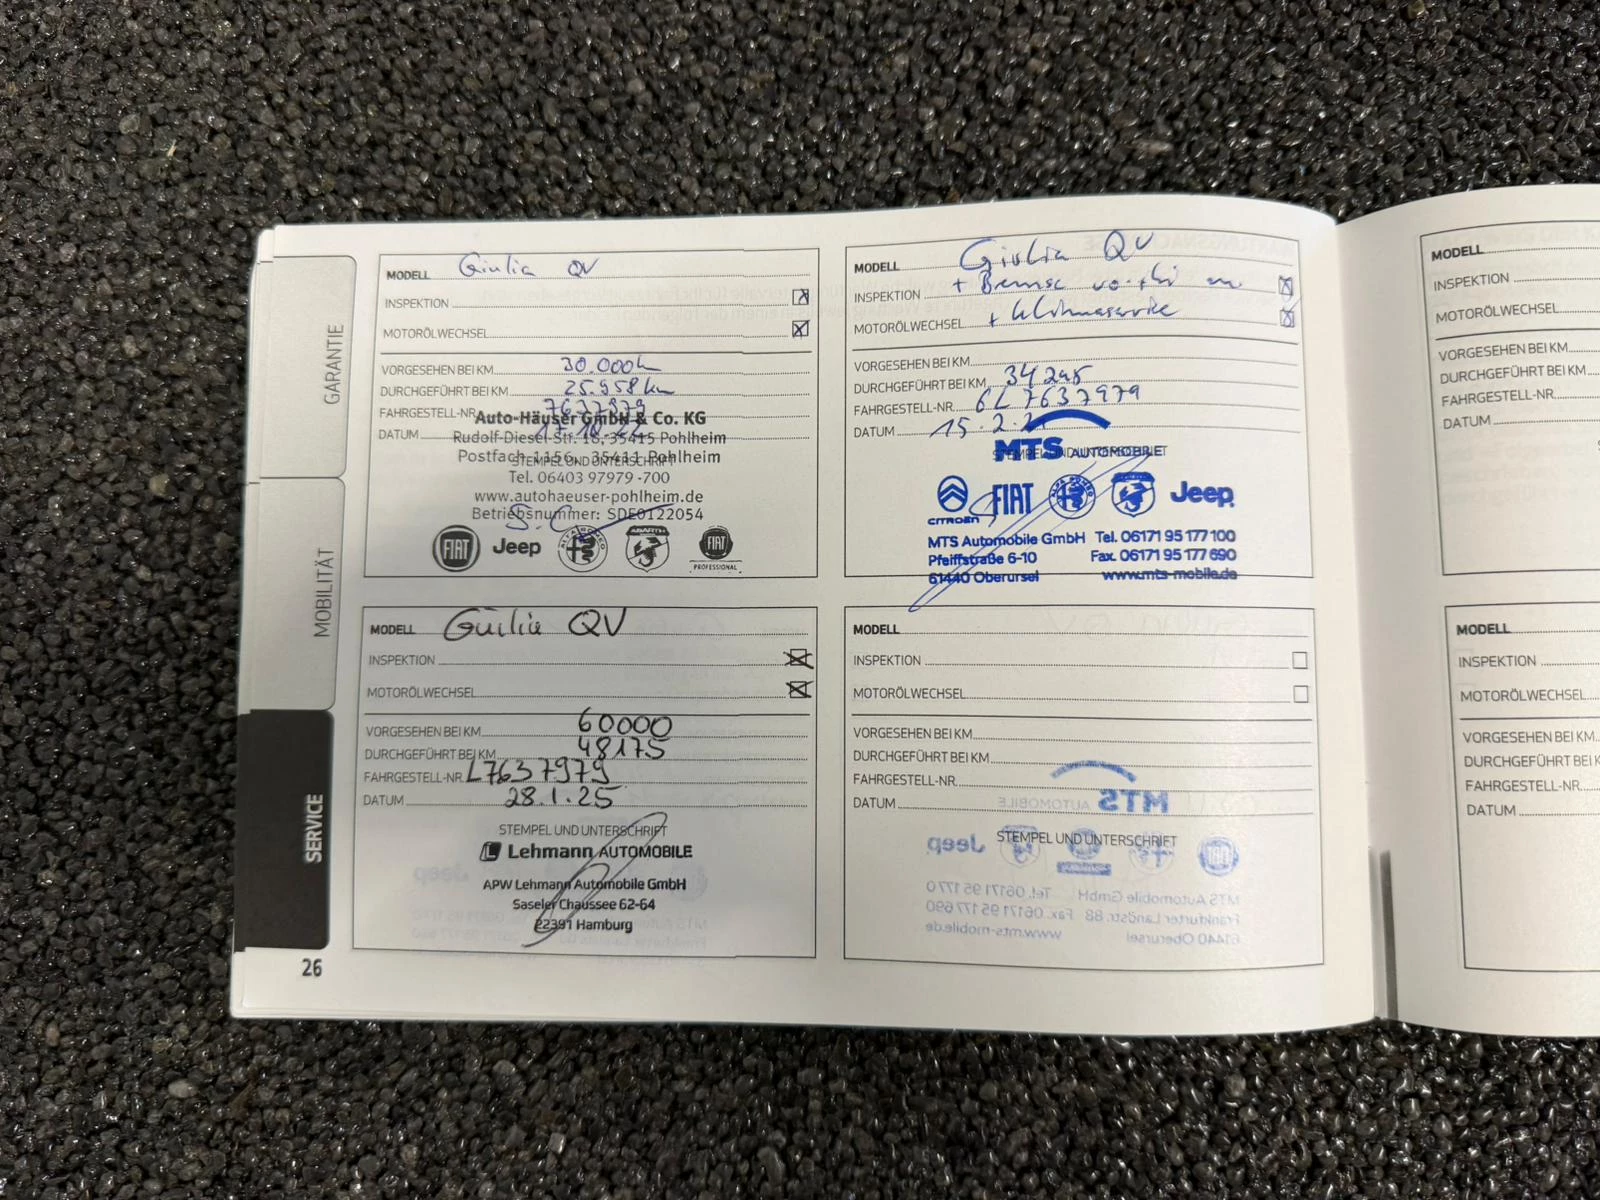 GARANTIE
MOBILITÄT
SERVICE
MODELL Giulia QV
INSPEKTION
MOTORÖLWECHSEL
VORGESEHEN BEI KM 30.000km
DURCHGEFÜHRT BEI KM 25.958km
FAHRGESTELL-NR.
DATUM
Auto-Häuser GmbH & Co. KG
Rudolf-Diesel-Str. 18, 35415 Pohlheim
Postfach 1156, 35411 Pohlheim
STEMPEL UND UNTERSCHRIFT
Tel. 06403 97979 -700
www.autohaeuser-pohlheim.de
Betriebsnummer: SDE0122054
FIAT Jeep ALFA ROMEO ABARTH FIAT
PROFESSIONAL
MODELL Giulia QV
INSPEKTION + Bremse
MOTORÖLWECHSEL + Klimaservice
VORGESEHEN BEI KM
DURCHGEFÜHRT BEI KM
FAHRGESTELL-NR. 6L7637979
DATUM 15.2.
MTS AUTOMOBILE
STEMPEL UND UNTERSCHRIFT
CITROËN FIAT ALFA ROMEO Jeep
MTS Automobile GmbH Tel. 06171 95 177 100
Pfeiffstraße 6-10 Fax. 06171 95 177 690
61440 Oberursel www.mts-mobile.de
MODELL Guilia QV
INSPEKTION
MOTORÖLWECHSEL
VORGESEHEN BEI KM 60000
DURCHGEFÜHRT BEI KM 48175
FAHRGESTELL-NR. L7637979
DATUM 28.1.25
STEMPEL UND UNTERSCHRIFT
Lehmann AUTOMOBILE
APW Lehmann Automobile GmbH
Saseler Chaussee 62-64
22391 Hamburg
MODELL
INSPEKTION
MOTORÖLWECHSEL
VORGESEHEN BEI KM
DURCHGEFÜHRT BEI KM
FAHRGESTELL-NR.
DATUM
STEMPEL UND UNTERSCHRIFT
26
MODELL
INSPEKTION
MOTORÖLWECHSEL
VORGESEHEN BEI KM
DURCHGEFÜHRT BEI KM
FAHRGESTELL-NR.
DATUM
MODELL
INSPEKTION
MOTORÖLWECHSEL
VORGESEHEN BEI KM
DURCHGEFÜHRT BEI K
FAHRGESTELL-NR.
DATUM